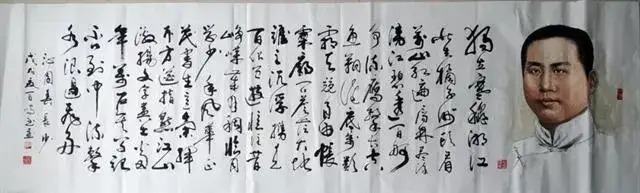 独立寒秋湘江
北去橘子洲头看
万山红遍层林尽染
漫江碧透百舸
争流鹰击长空
鱼翔浅底万类
霜天竞自由怅
寥廓问苍茫大地
谁主沉浮携来
百侣曾游忆往昔
峥嵘岁月稠恰同
学少年风华正
茂书生意气挥
斥方遒指点江山
激扬文字粪土当
年万户侯曾记
否到中流击
水浪遏飞舟
沁园春长沙
戊戌夏百